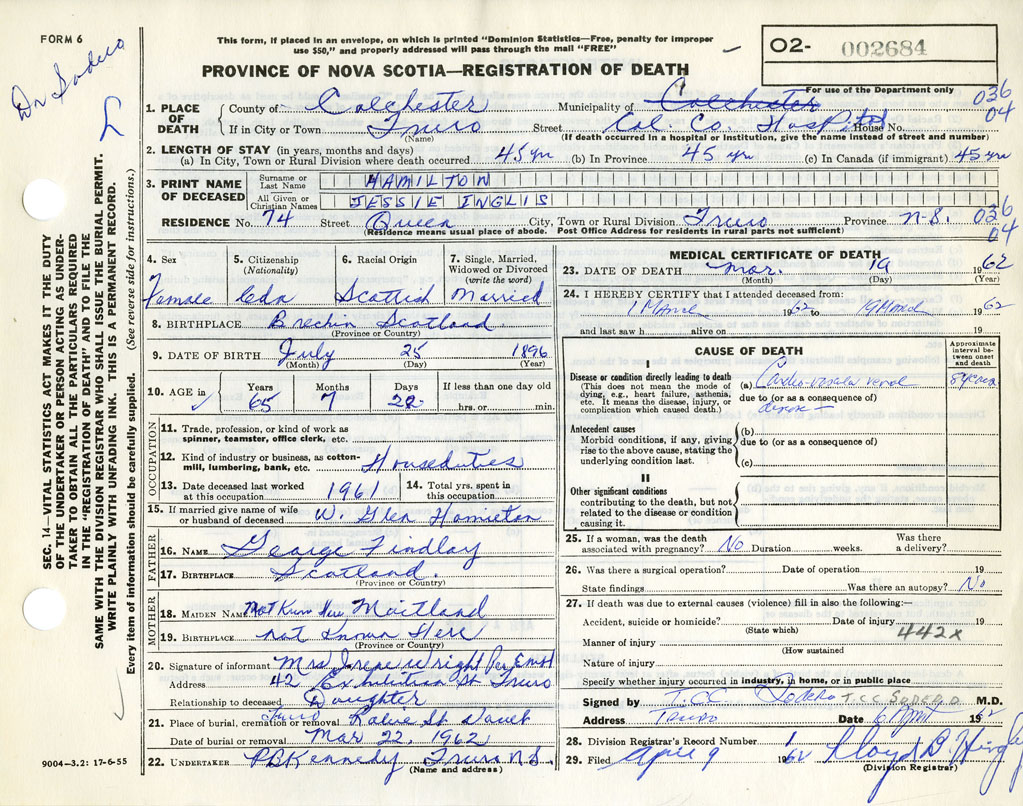 FORM 6
This form, if placed in an envelope, on which is printed "Dominion Statistics—Free, penalty for improper
use $50," and properly addressed will pass through the mail "FREE"
O2- 002684
For use of the Department only
PROVINCE OF NOVA SCOTIA—REGISTRATION OF DEATH
036
04
SEC. 14—VITAL STATISTICS ACT MAKES IT THE DUTY
OF THE UNDERTAKER OR PERSON ACTING AS UNDER-
TAKER TO OBTAIN ALL THE PARTICULARS REQUIRED
IN THE "REGISTRATION OF DEATH" AND TO FILE THE
SAME WITH THE DIVISION REGISTRAR WHO SHALL ISSUE THE BURIAL PERMIT.
WRITE PLAINLY WITH UNFADING INK. THIS IS A PERMANENT RECORD.
Every item of information should be carefully supplied. (See reverse side for instructions.)
1. PLACE OF DEATH
County of Colchester Municipality of Colchester
If in City or Town Truro Street Col. Co. Hospital House No.
(Name) (If death occurred in a hospital or institution, give the name instead of street and number)
2. LENGTH OF STAY (in years, months and days)
(a) In City, Town or Rural Division where death occurred 45 yrs (b) In Province 45 yrs (c) In Canada (if immigrant) 45 yrs
3. PRINT NAME OF DECEASED
Surname or Last Name HAMILTON
All Given or Christian Names JESSIE INGLIS
RESIDENCE No. 74 Street Queen City, Town or Rural Division Truro Province N.S. 036
04
(Residence means usual place of abode. Post Office Address for residents in rural parts not sufficient)
4. Sex Female
5. Citizenship (Nationality) Cdn
6. Racial Origin Scottish
7. Single, Married, Widowed or Divorced (write the word) Married
8. BIRTHPLACE Brechin Scotland
(Province or Country)
9. DATE OF BIRTH July 25 1896
(Month) (Day) (Year)
10. AGE in Years 65 Months 7 Days 22 If less than one day old
hrs. or min.
OCCUPATION
11. Trade, profession, or kind of work as
spinner, teamster, office clerk, etc.
12. Kind of industry or business, as cotton-
mill, lumbering, bank, etc. Houseduties
13. Date deceased last worked
at this occupation 1961
14. Total yrs. spent in
this occupation
15. If married give name of wife
or husband of deceased W. Glen Hamilton
FATHER
16. NAME George Findlay
17. BIRTHPLACE Scotland.
(Province or Country)
MOTHER
18. MAIDEN NAME Maitland
19. BIRTHPLACE not Known Here
(Province or Country)
20. Signature of informant Mrs Irene Wright Per EMH
Address 42 Exhibition St Truro
Relationship to deceased Daughter
21. Place of burial, cremation or removal Truro
Date of burial or removal Mar 22, 1962
22. UNDERTAKER PB Kennedy Truro N.S.
(Name and address)
9004—3.2: 17-6-55
MEDICAL CERTIFICATE OF DEATH
23. DATE OF DEATH Mar. 19 1962
(Month) (Day) (Year)
24. I HEREBY CERTIFY that I attended deceased from:
1 March 1962 to 19 March 1962
and last saw h alive on 19
CAUSE OF DEATH
Approximate interval be-tween onset and death
I
Disease or condition directly leading to death
(This does not mean the mode of
dying, e.g., heart failure, asthenia,
etc. It means the disease, injury, or
complication which caused death.)
(a) Cardio-vascular renal
due to (or as a consequence of)
Antecedent causes
Morbid conditions, if any, giving
rise to the above cause, stating the
underlying condition last.
(b)
due to (or as a consequence of)
(c)
II
Other significant conditions
contributing to the death, but not
related to the disease or condition
causing it.
25. If a woman, was the death
associated with pregnancy? No Duration weeks. Was there
a delivery?
26. Was there a surgical operation? Date of operation 19
State findings Was there an autopsy? No
27. If death was due to external causes (violence) fill in also the following:—
Accident, suicide or homicide? Date of injury 19
(State which) 442x
Manner of injury
(How sustained)
Nature of injury
Specify whether injury occurred in industry, in home, or in public place
Signed by T.C.C. Sodero T.C.C. SODERO M.D.
Address Truro Date 6 April 1962
28. Division Registrar's Record Number 1
29. Filed April 9 1962 Lloyd
(Division Registrar)
Dr Sodero